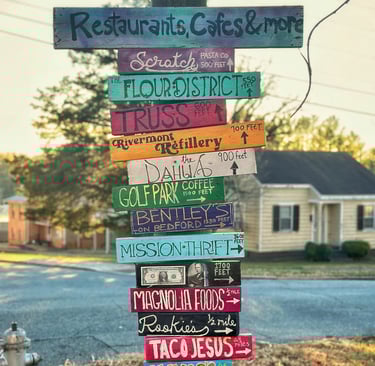 Restaurants, Cafes & more
Scratch PASTA CO
500 FEET
THE FLOUR DISTRICT 550
FEET
TRUSS 600
FEET
Rivermont 700 FEET
Refillery
the
DAHLIA 900 FEET
GOLF PARK COFFEE
1500 FEET
BENTLEY'S
ON BEDFORD
MISSION THRIFT
FEET
1700
FEET
MAGNOLIA FOODS ½
MILE
Rookie's ½ mile
TACO JESUS
MILES